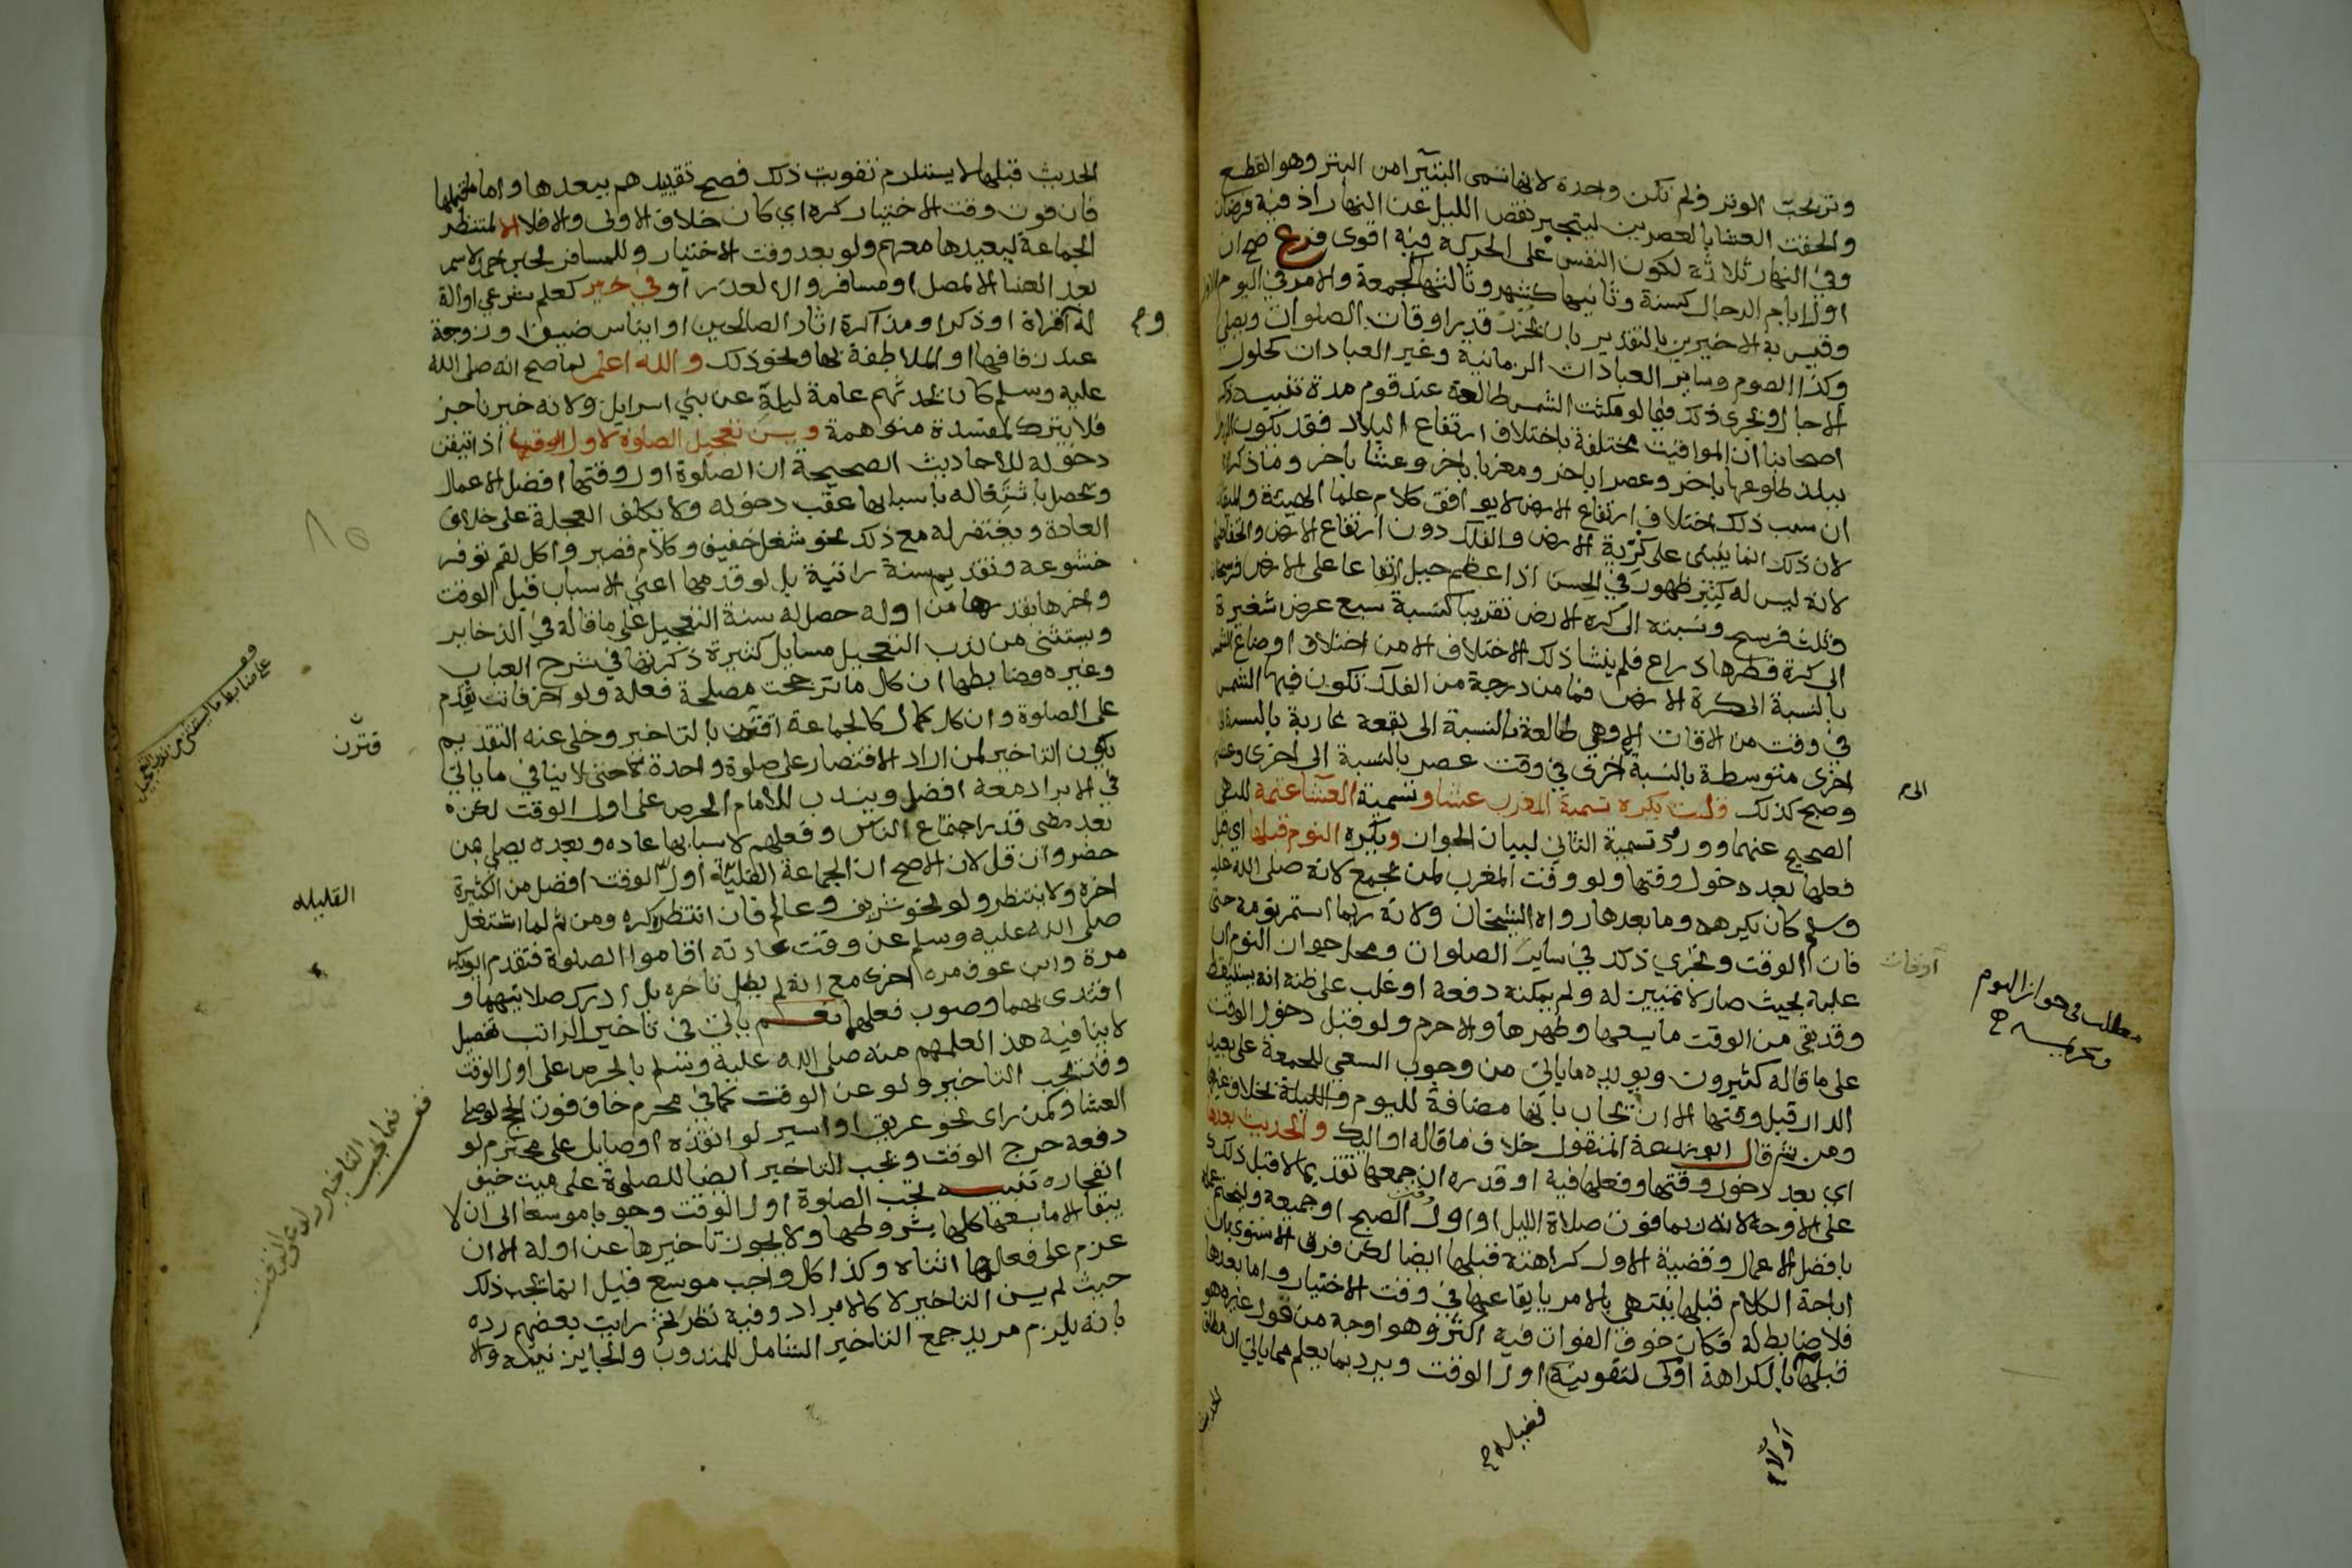 وتربحت الوتر ولم تكن واحدة لانها تسمى البتيرا من البتر وهو القطع
والحقت العشا بالعصرين ليتجبر نقص الليل عن النهار اذ فيه فرضان
وفي النهار ثلاثة لكون النفس على الحركة فيه اقوى فرع صح ان
اول ايام الدجال كسنة وثانيها كشهر وثالثها كجمعة والامر في اليوم الاول
وقيس به الاخيرين بالتقدير بان تحرر قدر اوقات الصلوات ويصلي
وكذا الصوم وساير العبادات الزمانية وغير العبادات كحلول
الاجال ويجري ذلك فيما لو مكثت الشمس طالعة عند قوم مدة تنبيه ذكر
اصحابنا ان المواقيت مختلفة باختلاف ارتفاع البلاد فقد يكون الزوال
ببلد طلوعها باخر وعصرا باخر ومغربا باخر وعشا باخر وما ذكراه
ان سبب ذلك اختلاف ارتفاع الارض لا يوافق كلام علما الهيئة والميقات
لان ذلك انما ينبني على كرية الارض والفلك دون ارتفاع الارض وانخفاضها
لانه ليس له كبير ظهور في الحس اذ اعظم جبل ارتفاعا على الارض فرسخان
وثلث فرسخ ونسبته الى كرة الارض تقريبا كنسبة سبع عرض شعيرة
الى كرة قطرها ذراع فلم ينشا ذلك الاختلاف الا من اختلاف اوضاع الشمس
بالنسبة الى كرة الارض فما من درجة من الفلك تكون فيها الشمس
في وقت من الاقات الا وهي طالعة بالنسبة الى بقعة غاربة بالنسبة الى
اخرى متوسطة بالنسبة لاخرى في وقت عصر بالنسبة الى اخرى وعشا
وصبح كذلك قلت يكره تسمية المغرب عشا وتسمية العشا عتمة للنهي
الصحيح عنهما وورد تسمية الثاني لبيان الجواز ويكره النوم قبلها اي قبل
فعلها بعد دخول وقتها ولو وقت المغرب لمن يجمع لانه صلى الله عليه
وسلم كان يكرهه وما بعدها رواه الشيخان ولانه ربما استمر نومه حتى
فات الوقت ويجري ذلك في ساير الصلوات ومحل جواز النوم ان
غلبه بحيث صار لا تمييز له ولم يمكنه دفعه او غلب على ظنه انه يستيقظ
وقد بقي من الوقت ما يسعها وطهرها والا حرم ولو قبل دخول الوقت
على ما قاله كثيرون ويويده ماياتي من وجوب السعي للجمعة على بعيد
الدار قبل وقتها الا ان يجاب بانها مضافة لليوم والليلة بخلاف غيرها
ومن ثم قال ابو زرعة المنقول خلاف ما قاله اوليك والحديث بعدها
اي بعد دخول وقتها وفعلها فيه او قدره ان جمعها تقديما لا قبل ذلك
على الاوجه لانه ربما فوت صلاة الليل او اول الصبح او جميعه وليختم عمله
بافضل الاعمال وقضية الاول كراهته قبلها ايضا لكن فرق الاسنوي بان
اباحة الكلام قبلها ينتهي بالامر بايقاعها في وقت الاختيار واما بعدها
فلا ضابط له فكان خوف الفوات فيه اكثر وهو اوجه من قول غيره هو
قبلها بالكراهة اولى لتفويته اول الوقت ويرد بما يعلم مما ياتي ان مطلق
الى
اوقات
مطلب في جواز النوم
وتحريمه
فضيلة
اولا
الحديث
الحديث قبلها لا يستلزم تفويت ذلك فصح تقييدهم ببعدها واما قبلها
فان فوت وقت الاختيار كره اي كان خلاف الاولى والا فلا الا لمنتظر
الجماعة ليعيدها معهم ولو بعد وقت الاختيار وللمسافر لخبر احمد لا سمر
بعد العشا الا لمصل او مسافر والا لعذر او في خير كعلم شرعي او الة
له كقراة او ذكر او مذاكرة اثار الصالحين او ايناس ضيف او زوجة
عند زفافها او الملاطفة لها ونحو ذلك والله اعلم لما صح انه صلى الله
عليه وسلم كان يحدثهم عامة ليلة عن بني اسرايل ولانه خير ناجز
فلا يترك لمفسدة متوهمة ويسن تعجيل الصلوة لاول الوقت اذا تيقن
دخوله للاحاديث الصحيحة ان الصلوة اول وقتها افضل الاعمال
وتحصل باشتغاله باسبابها عقب دخوله ولا يكلف العجلة على خلاف
العادة ويغتفر له مع ذلك نحو شغل خفيف وكلام قصير واكل لقم توفر
خشوعه وتقديم سنة راتبة بل لو قدمها اعني الاسباب قبل الوقت
واخرها بقدرها من اوله حصل له سنة التعجيل على ما قاله في الذخاير
ويستثنى من ندب التعجيل مسايل كثيرة ذكرتها في شرح العباب
وغيره وضابطها ان كل ما ترجحت مصلحة فعله ولو اخر فاتت يقدم
على الصلوة وان كل كمال كالجماعة اقترن بالتاخير وخلى عنه التقديم
يكون التاخير لمن اراد الاقتصار على صلوة واحدة كاحتى لا ينافي ما ياتي
في الابراد معه افضل ويندب للامام الحرص على اول الوقت لكن
بعد مضى قدر اجتماع الناس وفعلهم لاسبابها عاده وبعده يصلي بمن
حضر وان قل لان الاصح ان الجماعة القليلة اول الوقت افضل من الكثيرة
اخره ولا ينتظر ولو لنحو شريف وعالم فان انتظر كره ومن ثم لما اشتغل
صلى الله عليه وسلم عن وقت عادته اقاموا الصلوة فتقدم ابو بكر
مرة وابن عوف مره اخرى مع انه لم يطل تاخره بل ادرك صلاتيهما و
اقتدى بهما وصوب فعلهما نعم ياتي في تاخير الراتب تفصيل
لا ينافيه هذا لعلمهم منه صلى الله عليه وسلم بالحرص على اول الوقت
وقد يجب التاخير ولو عن الوقت كما في محرم خاف فوت الحج لو صلى
العشا وكمن راى نحو غريق او اسير لو انقذه او صايل على محترم لو
دفعه خرج الوقت ويجب التاخير ايضا للصلوة على ميت خيف
انفجاره تنبيه تجب الصلوة اول الوقت وجوبا موسعا الى ان لا
يبقا الا ما يسعها كلها بشروطها ولا يجوز تاخيرها عن اوله الا ان
عزم على فعالها اثناه وكذا كل واجب موسع قيل انما يجب ذلك
حيث لم يسن التاخير لا كالابراد وفيه نظر ثم رايت بعضهم رده
بانه يلزم مريد جمع التاخير الشامل للمندوب والجايز نيته والا
قف
على ضابط ما يستثنى من ندب التعجيل
قترن
القليله
قف
فيما يجب التاخير ولو عن الوقت
٨٥